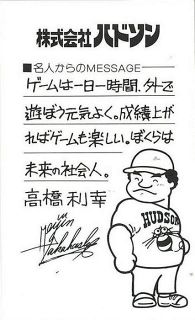 株式会社ハドソン
■名人からのMESSAGE
ゲームは一日一時間、外で
遊ぼう元気よく。成績上が
ればゲームも楽しい。ぼくらは
未来の社会人。
高橋利幸
Meijin
Takahashi
HUDSON